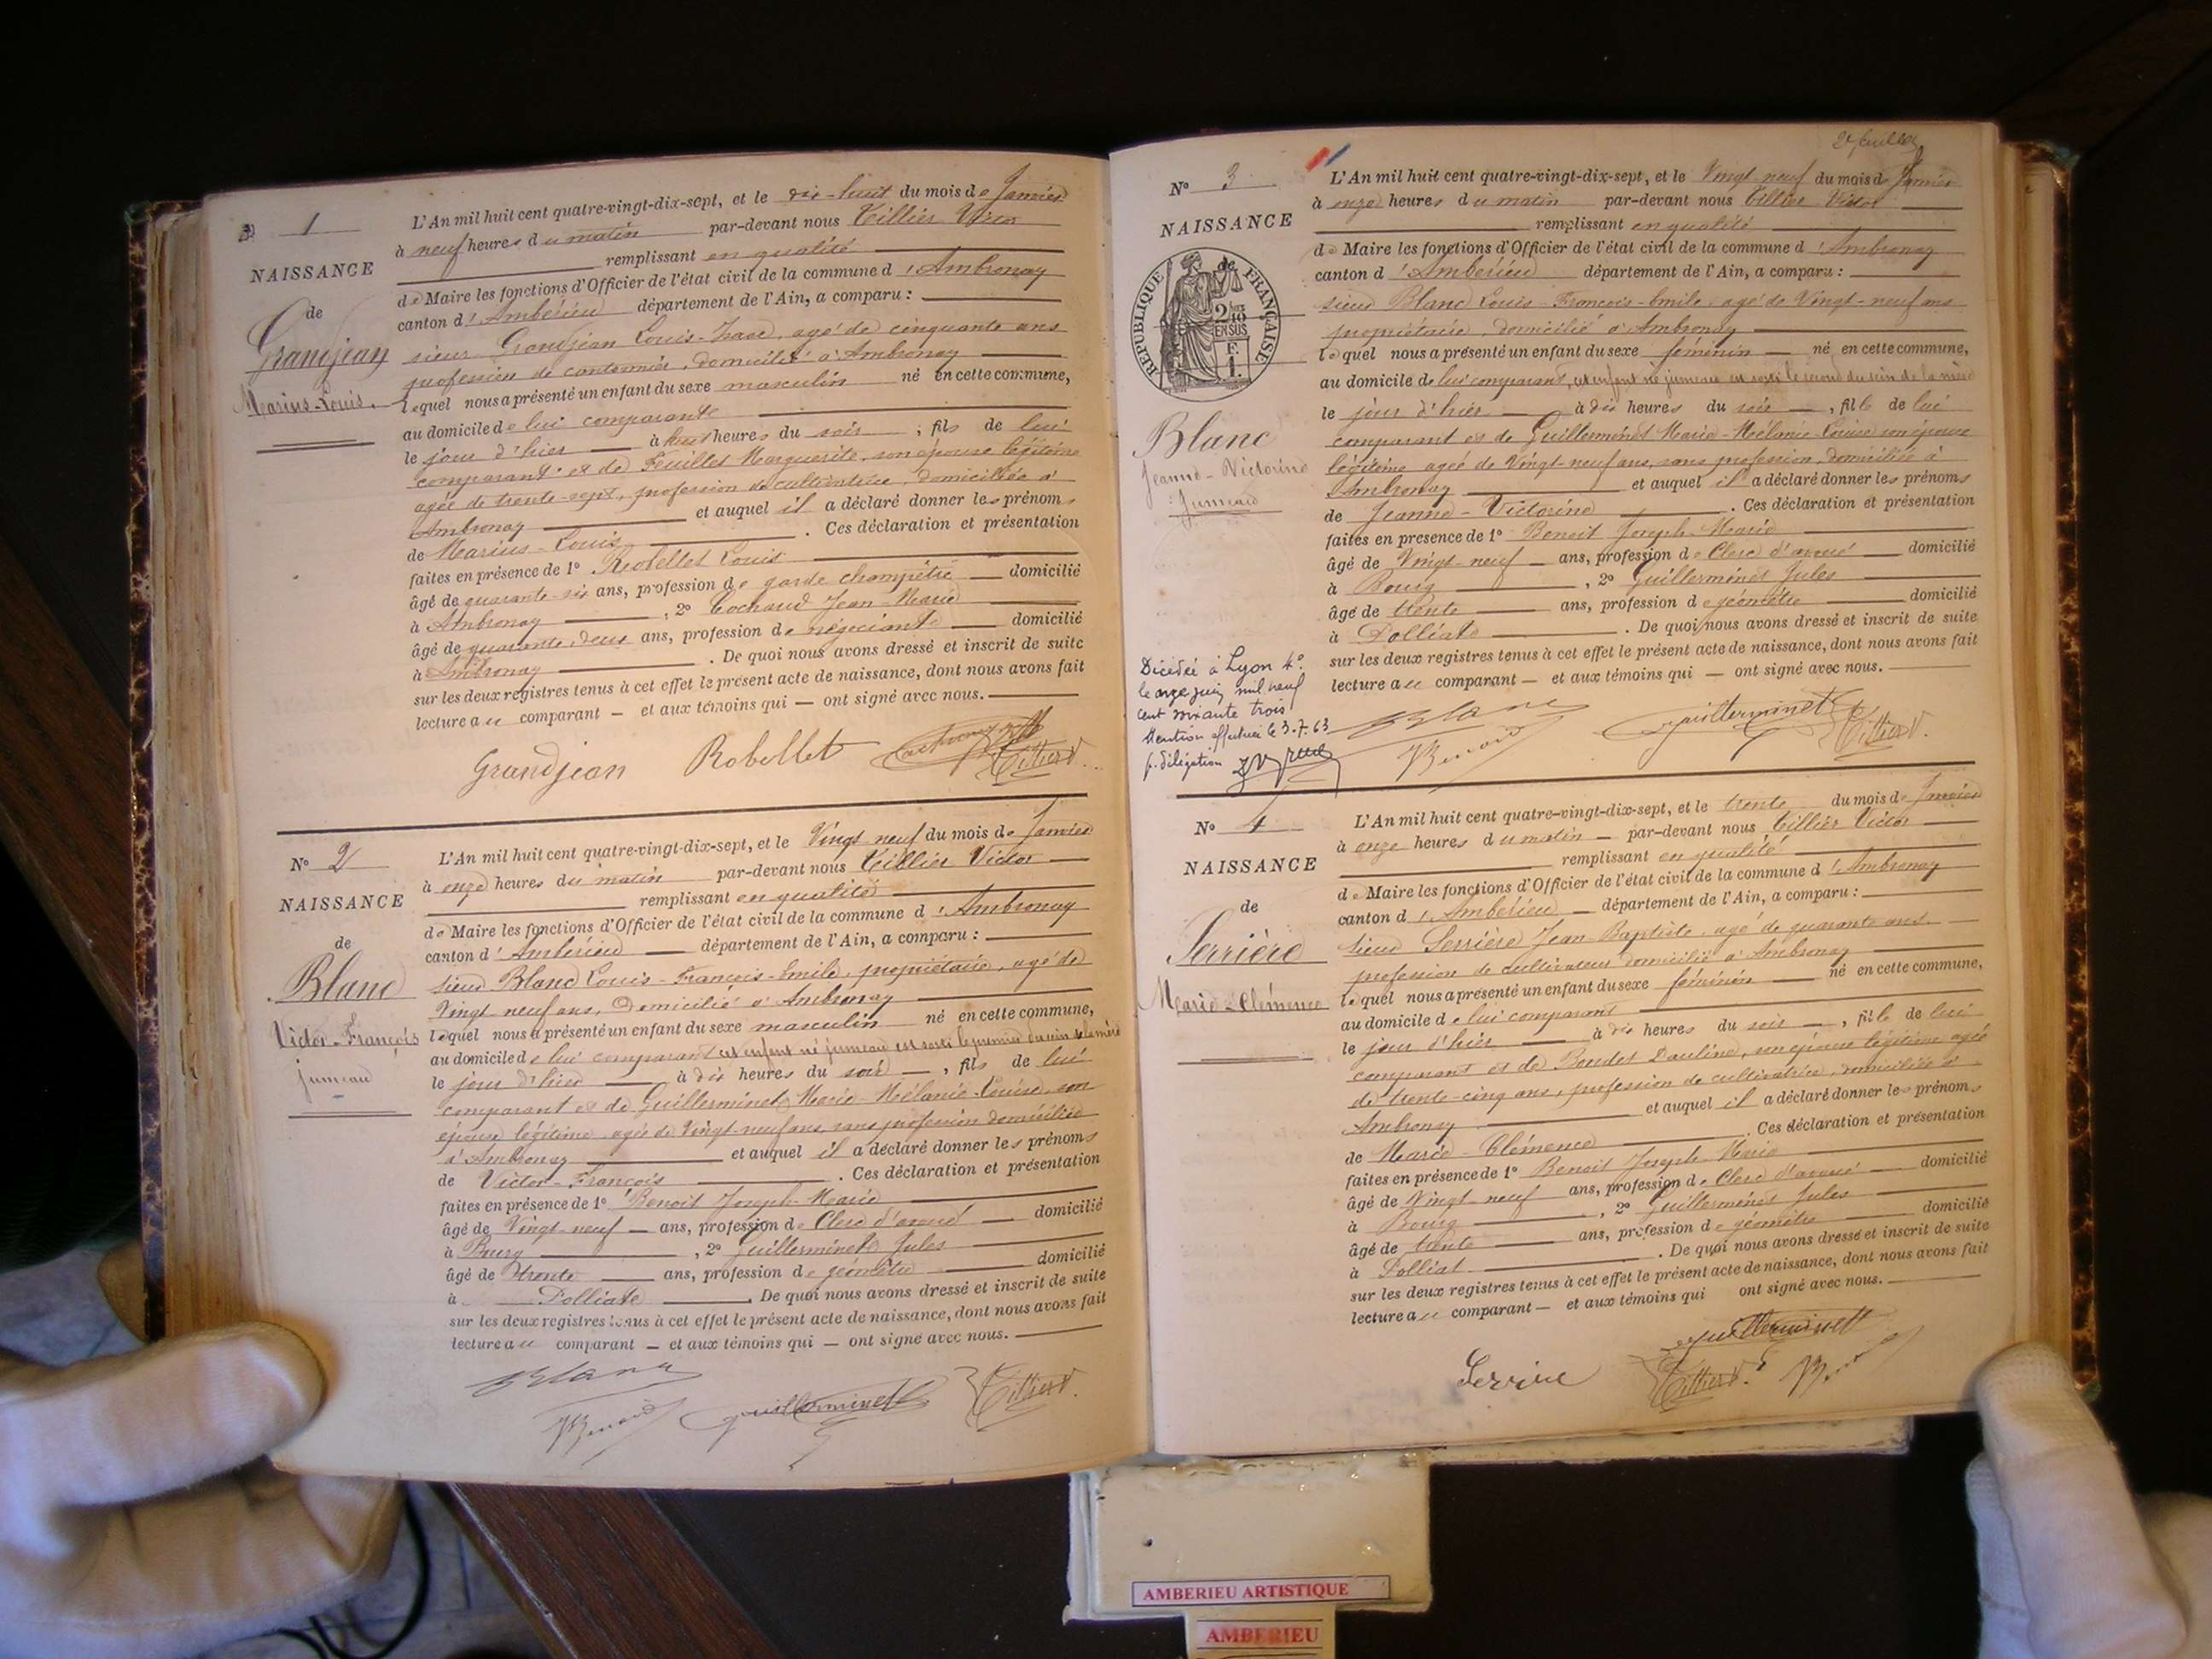 N° 1
NAISSANCE
de
Grandjean
Marius-Louis
L'An mil huit cent quatre-vingt-dix-sept, et le dix-huit du mois de Janvier
à neuf heures du matin par-devant nous Tillier Victor
remplissant en qualité
de Maire les fonctions d'Officier de l'état civil de la commune d'Ambronay
canton d'Ambérieu département de l'Ain, a comparu :
sieur Grandjean Louis-Isaac, agé de cinquante ans
profession de cantonnier, domicilié à Ambronay
lequel nous a présenté un enfant du sexe masculin né en cette commune,
au domicile de lui comparant
le jour d'hier à heures du soir, fils de lui
comparant et de Feuillet Marguerite, son épouse légitime
agée de trente-sept, profession de cultivatrice, domiciliée à
Ambronay et auquel il a déclaré donner les prénoms
de Marius-Louis. Ces déclaration et présentation
faites en présence de 1° Robellet Louis
âgé de quarante-six ans, profession de garde champêtre domicilié
à Ambronay, 2° Cochaud Jean-Marie
âgé de quarante-deux ans, profession de négociant domicilié
à Ambronay. De quoi nous avons dressé et inscrit de suite
sur les deux registres tenus à cet effet le présent acte de naissance, dont nous avons fait
lecture au comparant et aux témoins qui ont signé avec nous.
Grandjean Robellet Tillier V.
N° 2
NAISSANCE
de
Blanc
Victor-François
jumeau
L'An mil huit cent quatre-vingt-dix-sept, et le Vingt neuf du mois de Janvier
à onze heures du matin par-devant nous Tillier Victor
remplissant en qualité
de Maire les fonctions d'Officier de l'état civil de la commune d'Ambronay
canton d'Ambérieu département de l'Ain, a comparu :
sieur Blanc Louis-François-Emile, propriétaire, agé de
Vingt-neuf ans, Domicilié à Ambronay
lequel nous a présenté un enfant du sexe masculin né en cette commune,
au domicile de lui comparant cet enfant né jumeau est sorti le premier du sein de la mère
le jour d'hier à dix heures du soir, fils de lui
comparant et de Guillerminet Marie-Mélanie-Louise, son
épouse légitime agée de Vingt-neuf ans, sans profession domiciliée
à Ambronay et auquel il a déclaré donner les prénoms
de Victor-François. Ces déclaration et présentation
faites en présence de 1° Benoit Joseph-Marie
âgé de Vingt-neuf ans, profession de Clerc d'avoué domicilié
à Bourg, 2° Guillerminet Jules
âgé de Trente ans, profession de géomètre domicilié
à Polliat. De quoi nous avons dressé et inscrit de suite
sur les deux registres tenus à cet effet le présent acte de naissance, dont nous avons fait
lecture au comparant et aux témoins qui ont signé avec nous.
Blanc
Benoit Guillerminet Tillier V.
N° 3
NAISSANCE
de
RÉPUBLIQUE FRANÇAISE
2/10
EN SUS
F.
1.
Blanc
Jeanne-Victorine
Jumeau
Décédée à Lyon 4e
le onze juin mil neuf
cent soixante trois
Mention effectuée le 3.7.63
p. délégation
2e feuillet
L'An mil huit cent quatre-vingt-dix-sept, et le Vingt neuf du mois de Janvier
à onze heures du matin par-devant nous Tillier Victor
remplissant en qualité
de Maire les fonctions d'Officier de l'état civil de la commune d'Ambronay
canton d'Ambérieu département de l'Ain, a comparu :
sieur Blanc Louis-François-Emile, agé de Vingt-neuf ans
propriétaire, domicilié à Ambronay
lequel nous a présenté un enfant du sexe féminin né en cette commune,
au domicile de lui comparant, cet enfant né jumeau est sorti le second du sein de la mère
le jour d'hier à dix heures du soir, fille de lui
comparant et de Guillerminet Marie-Mélanie-Louise son épouse
légitime agée de Vingt-neuf ans, sans profession, domiciliée à
Ambronay et auquel il a déclaré donner les prénoms
de Jeanne-Victorine. Ces déclaration et présentation
faites en présence de 1° Benoit Joseph-Marie
âgé de Vingt-neuf ans, profession de Clerc d'avoué domicilié
à Bourg, 2° Guillerminet Jules
âgé de trente ans, profession de géomètre domicilié
à Polliat. De quoi nous avons dressé et inscrit de suite
sur les deux registres tenus à cet effet le présent acte de naissance, dont nous avons fait
lecture au comparant et aux témoins qui ont signé avec nous.
Blanc Guillerminet
Benoit Tillier V.
N° 4
NAISSANCE
de
Serrière
Marie-Clémence
L'An mil huit cent quatre-vingt-dix-sept, et le trente du mois de Janvier
à onze heures du matin par-devant nous Tillier Victor
remplissant en qualité
de Maire les fonctions d'Officier de l'état civil de la commune d'Ambronay
canton d'Ambérieu département de l'Ain, a comparu :
sieur Serrière Jean-Baptiste, agé de quarante ans.
profession de cultivateur domicilié à Ambronay
lequel nous a présenté un enfant du sexe féminin né en cette commune,
au domicile de lui comparant
le jour d'hier à dix heures du soir, fille de lui
comparant et de Bondet Pauline, son épouse légitime agée
de trente-cinq ans, profession de cultivatrice, domiciliée à
Ambronay et auquel il a déclaré donner les prénoms
de Marie-Clémence. Ces déclaration et présentation
faites en présence de 1° Benoit Joseph-Marie
âgé de Vingt-neuf ans, profession de Clerc d'avoué domicilié
à Bourg, 2° Guillerminet Jules
âgé de trente ans, profession de géomètre domicilié
à Polliat. De quoi nous avons dressé et inscrit de suite
sur les deux registres tenus à cet effet le présent acte de naissance, dont nous avons fait
lecture au comparant et aux témoins qui ont signé avec nous.
Guillerminet
Tillier V. Benoit
AMBERIEU ARTISTIQUE
AMBERIEU